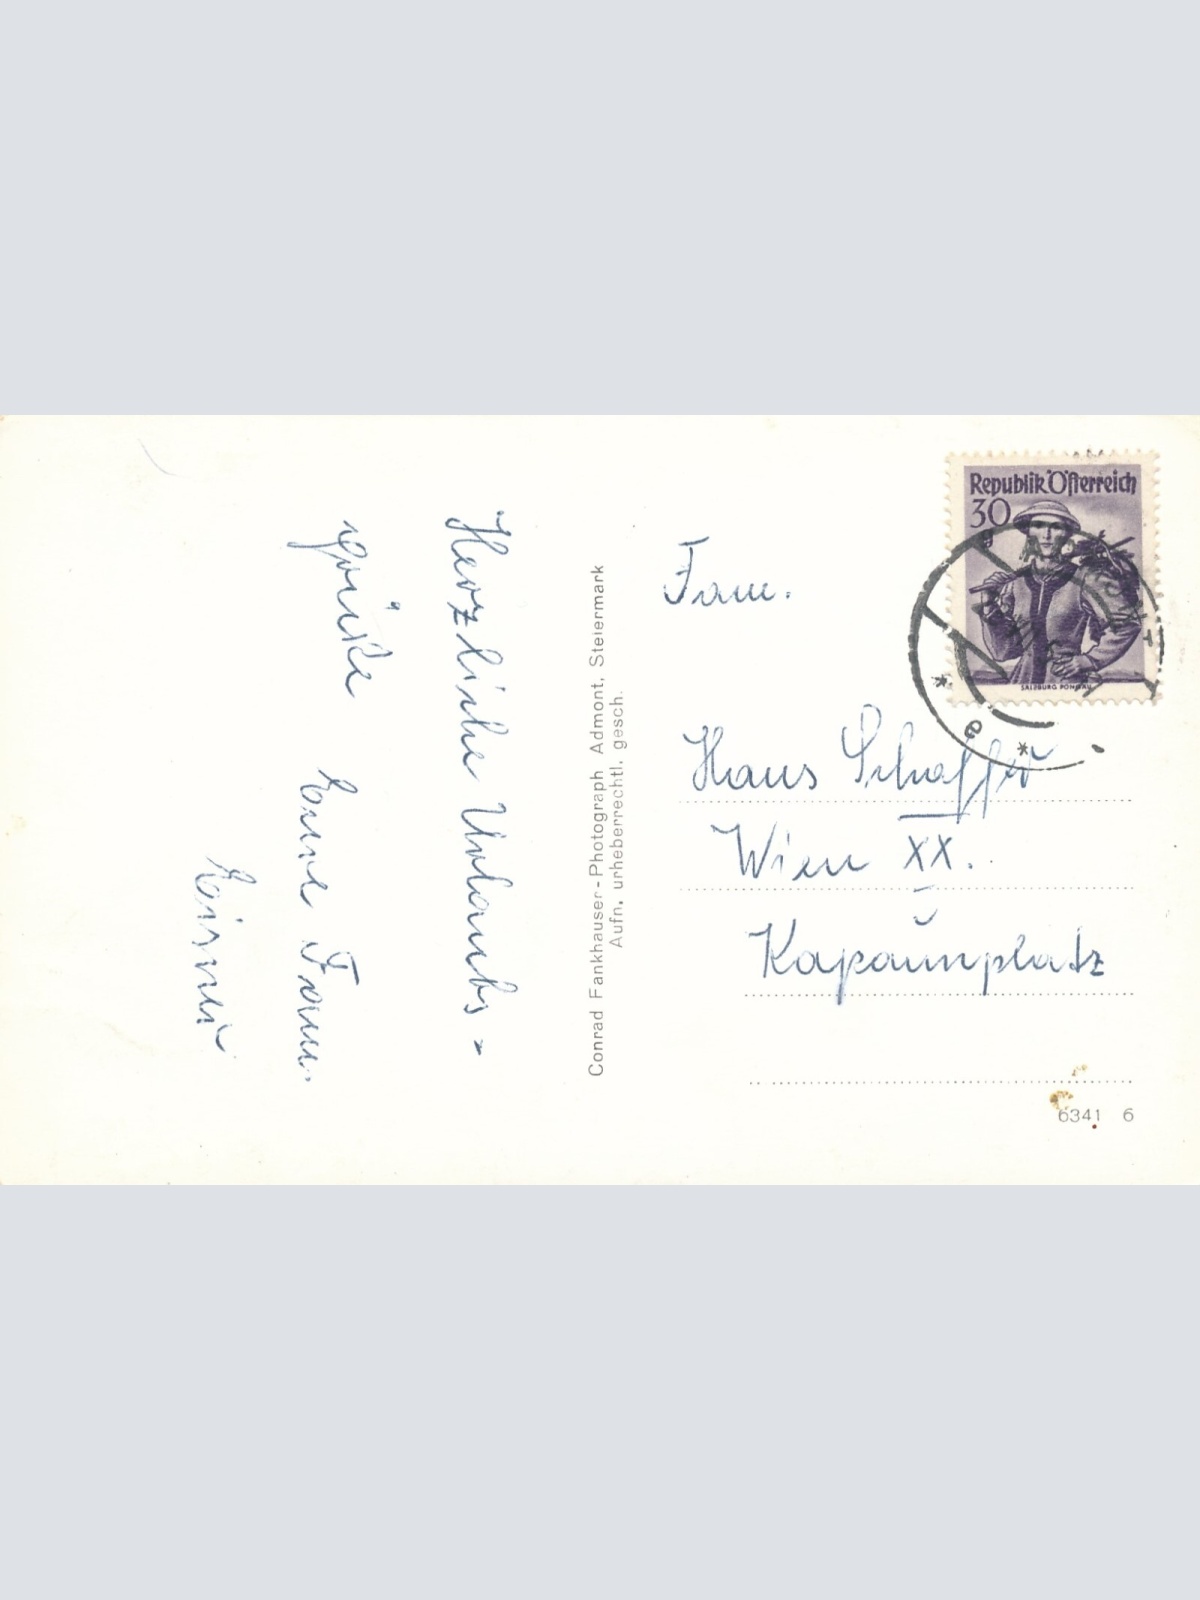 Herzliche Urlaubs-
grüße
Eure Fam.
Conrad Fankhauser-Photograph Admont, Steiermark
Aufn. urheberrechtl. gesch.
Republik Österreich
30
g
SALZBURG PONGAU
ADMONT
* e *
Fam.
Hans Schaffer
Wien XX.
Kapaunplatz
6341 6